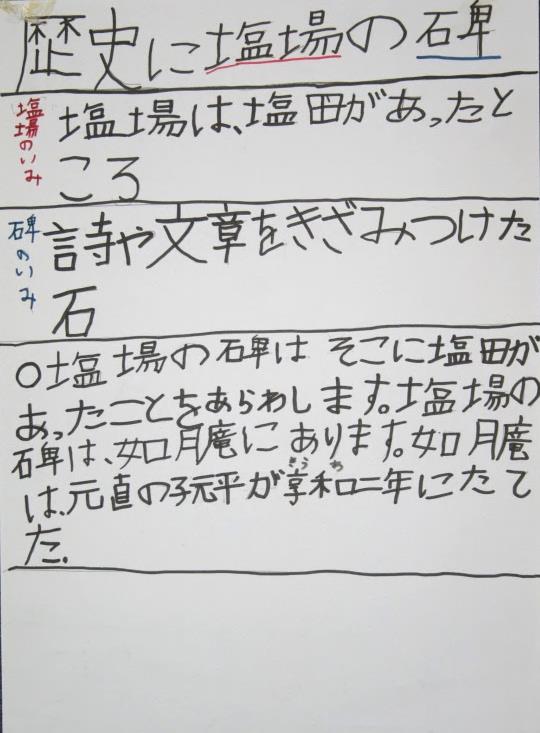 歴史に塩場の石碑
塩場のいみ
塩場は、塩田があったと
ころ
碑のいみ
詩や文章をきざみつけた
石
○塩場の碑は そこに塩田が
あったことをあらわします。塩場の
石碑は、如月庵にあります。如月庵
は、元直の子元平が享和二年にたて
きょう わ
た。